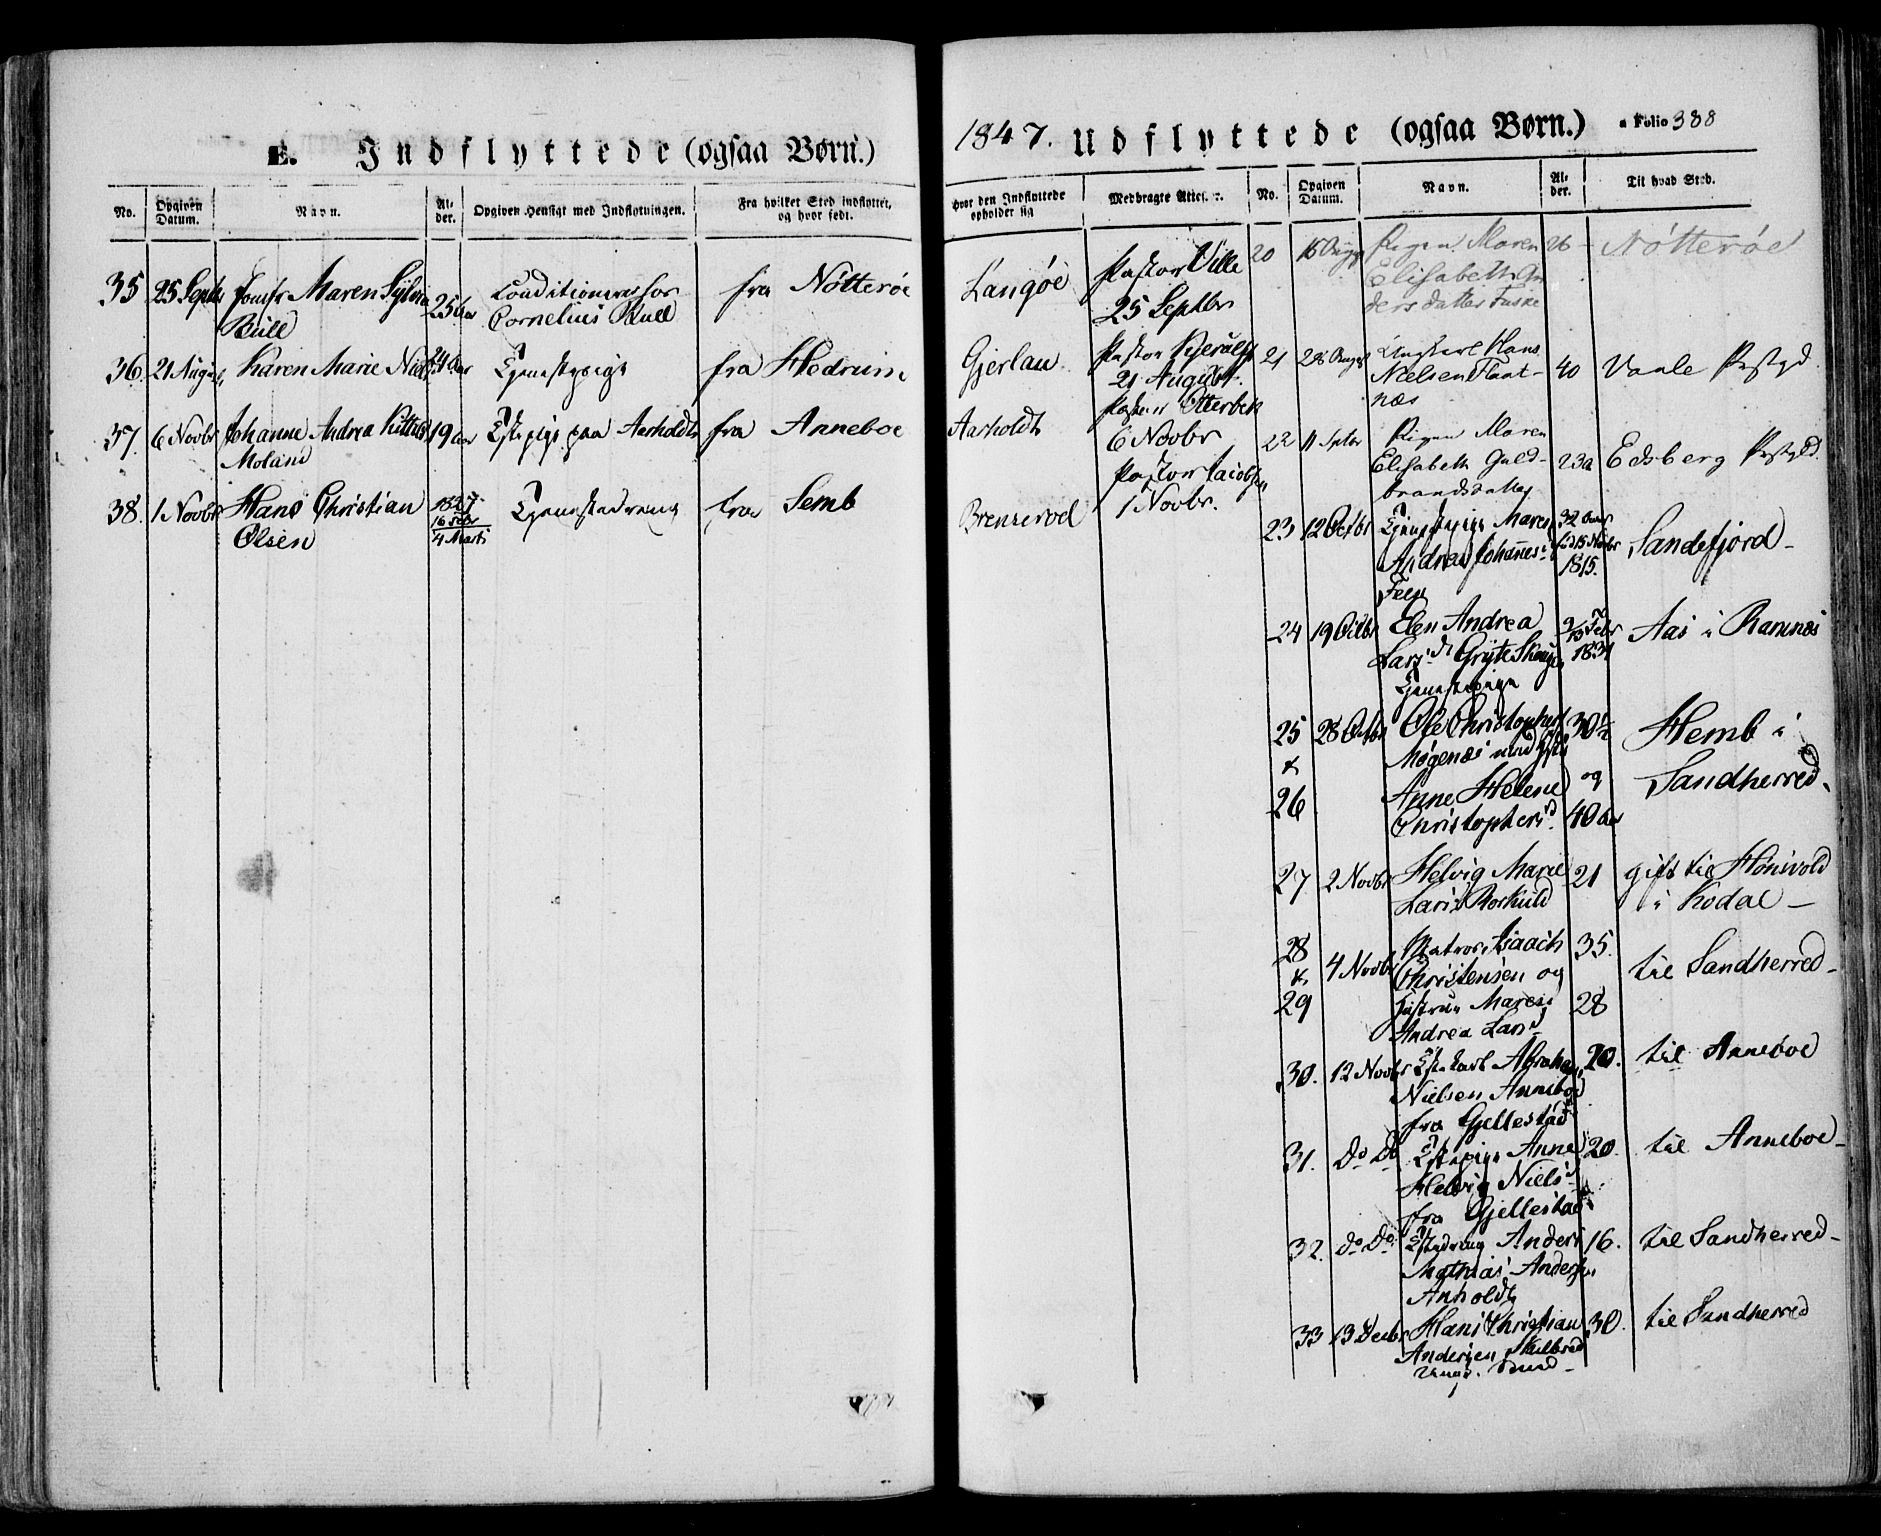 E. Indflyttede (ogsaa Børn.)
No. Opgiven Datum. Navn. Alder. Opgiven Hensigt med Indflytningen. Fra hvilket Sted indflyttet, og hvor født.
35 25 Septbr Jomfr Maren Sylvia 25 Aar Conditionerer hos fra Nötteröe
Büll Cornelius Bull
36. 21 August Karen Marie Niels 24 Aar Tjenestepige fra Hedrum
37. 6 Novbr Johanne Andrea 19 Aar Tjstepige paa Aarholdt fra Anneboe
Moland
38. 1 Novbr Hans Christian 1827 Tjenestedreng fra Semb
Olsen 16 Febr
4 Marts
1847. Udflyttede (ogsaa Børn.) a Folio 388
hvor den Indflyttede opholder sig Medbragte Attester. No. Opgiven Datum. Navn. Alder. Til hvad Sted.
Langöe Pastor Wille 20 Pigen Maren 26 Nötteröe
25 Septbr Elisabeth An
dersdatter Fuske
Gjerlau Pastor Kjerulf 21 28 August Ungkarl Hans 40 Vaale Præstgd
21 August. Nielsen Flaat-
næs
Aarholdt Pastor Otterbek 22 11 Sptbr Pigen Maren 23a Edsberg Præstgld.
6 Novbr Elisabeth Guld-
brandsdatter
Brenserød Pastor Jacobsen
1 Novbr.
23 12 Octbr Tjenestepige Maren 32 Aar Sandefjord-
Andrea Johannes- fød 15 Novbr
Feen 1815.
24 19 Octbr Elen Andrea Febr Aas i Ramnæs
Lars d. Gryte Skouge 1834
Tjenestepige
25 28 Octbr Ole Christophers 30½ Hemb i
& Mögenæs med Hstr og Sandherred.
26 Anne Helene
Christophersd. 40 Aar
27 2 Novbr Helvig Marie 21 gift til Hönivold
Larsd. Rorkuld i Kodal-
28 4 Novbr Matros Isaach 35. til Sandherred-
& Christensen og
29 Hustrue Maren 28
Andrea Larsd
30. 12 Novbr Tjstekarl Abraham 20. til Anneboe
Nielsen Anneboe
fra Gjellestad
31. Do Do Tjstepige Anne 20. til Anneboe-
Helvig Niels d
fra Gjellestad
32. Do Do Tjstedreng Anders 16. til Sandherred-
Mathias Anders
Anholdt
33 13 Decbr Hans Christian 30. til Sandherred
Andersen Skelbred